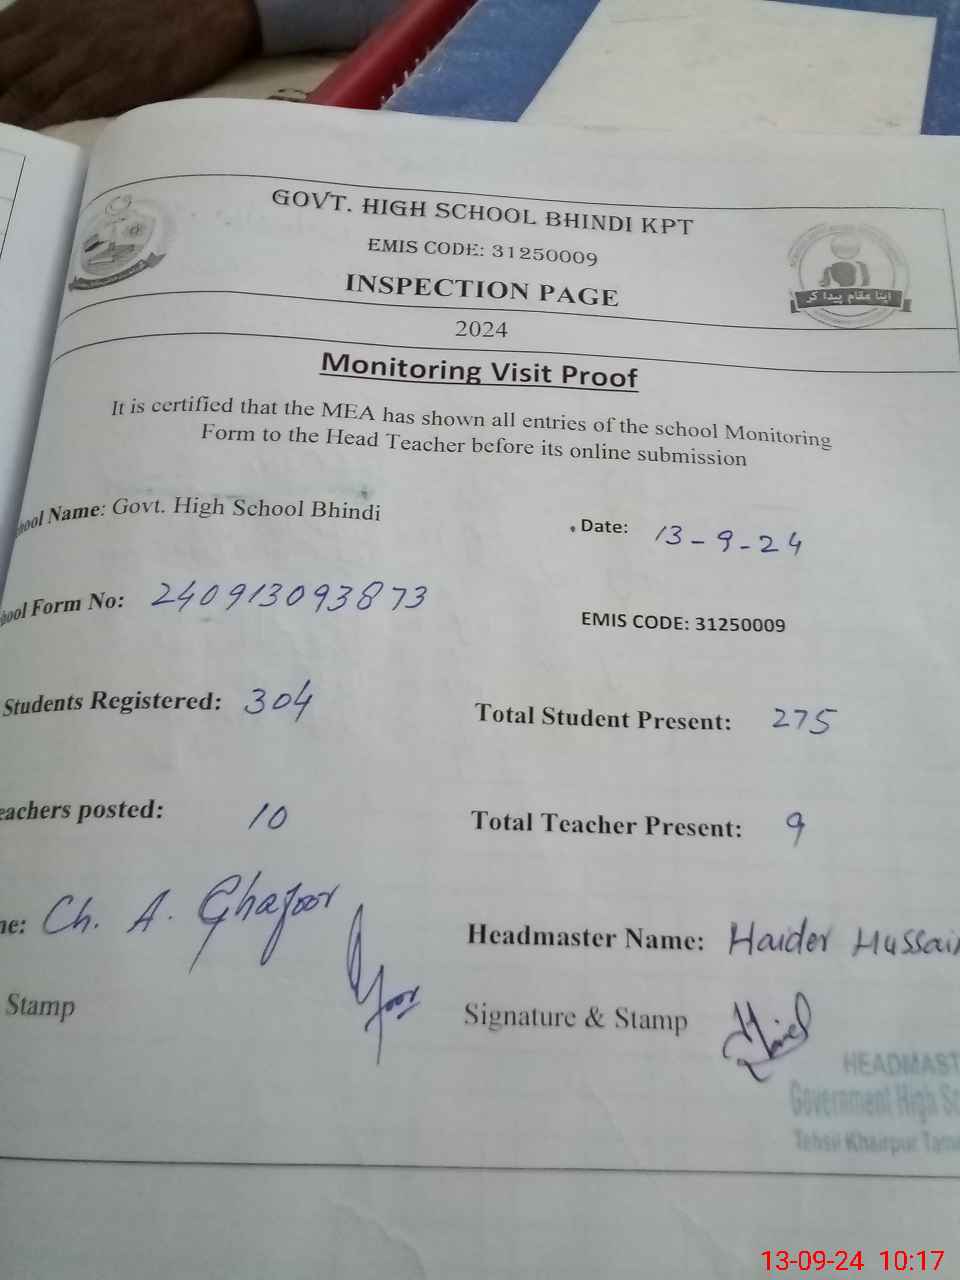 GOVT. HIGH SCHOOL BHINDI KPT
EMIS CODE: 31250009
INSPECTION PAGE
اپنا مقام پیدا کر
2024
Monitoring Visit Proof
It is certified that the MEA has shown all entries of the school Monitoring
Form to the Head Teacher before its online submission
hool Name: Govt. High School Bhindi
Date: 13-9-24
hool Form No: 240913093873
EMIS CODE: 31250009
Students Registered: 304
Total Student Present: 275
eachers posted: 10
Total Teacher Present: 9
ne: Ch. A. Ghafoor
Headmaster Name: Haider Hussain
Stamp
Signature & Stamp
HEADMAST
Government High Sc
Tehsil Khairpur Tami
13-09-24 10:17